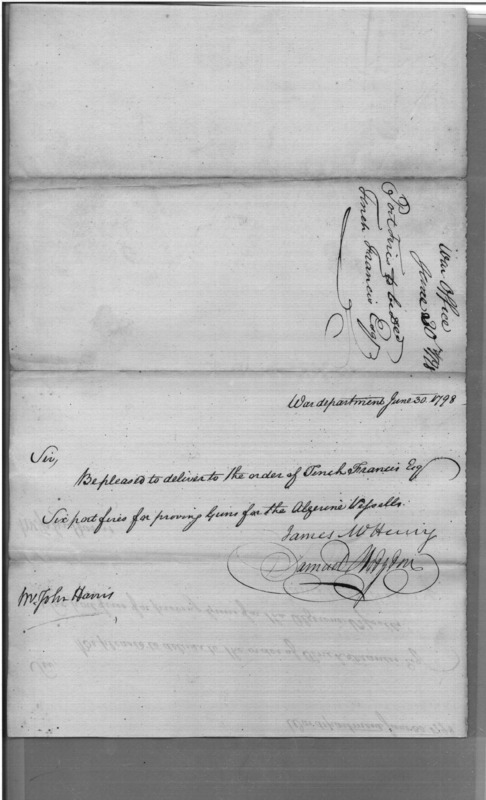 War Office
June 30 1798
Port fires to be dd
Tench Francis Esqr
War department June 30. 1798
Sir,
Be pleased to deliver to the order of Tench Francis Esq
Six port fires for proving Guns for the Algerine Vessells.
James McHenry
Samuel Hodgdon
Mr. John Harris